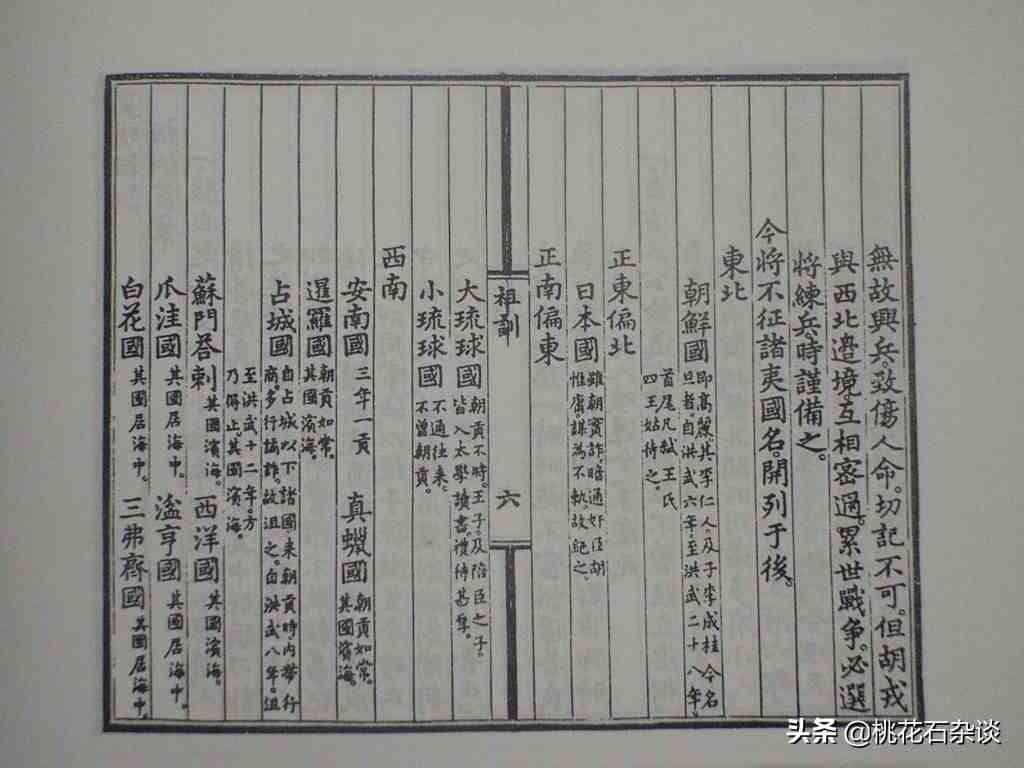 無故興兵。致傷人命。切記不可。但胡戎
與西北邊境。互相密邇。累世戰爭。必選
將練兵。時謹備之。
今將不征諸夷國名。開列于後。
東北
朝鮮國 即高麗。其李仁人。及子李成桂今名
旦者。自洪武六年。至洪武二十八年。
首尾凡弒王氏
四王。姑待之。
正東偏北
日本國 雖朝實詐。暗通奸臣胡
惟庸。謀為不軌。故絕之。
正南偏東
祖訓 六
大琉球國 朝貢不時。王子及陪臣之子。
皆入太學讀書。禮待甚厚。
小琉球國 不通往來。
不曾朝貢。
西南
安南國 三年一貢 真蠟國 朝貢如常。
其國濱海。
暹羅國 朝貢如常。
其國濱海。
占城國 自占城以下諸國來朝貢時。內帶行
商。多行譎詐。故沮之。自洪武八年。沮
至洪武十二年。方
乃得止。其國濱海。
蘇門荅剌 其國濱海。 西洋國 其國濱海。
爪洼國 其國居海中。 湓亨國 其國居海中。
白花國 其國居海中。 三弗齊國 其國居海中。
头条 @桃花石杂谈